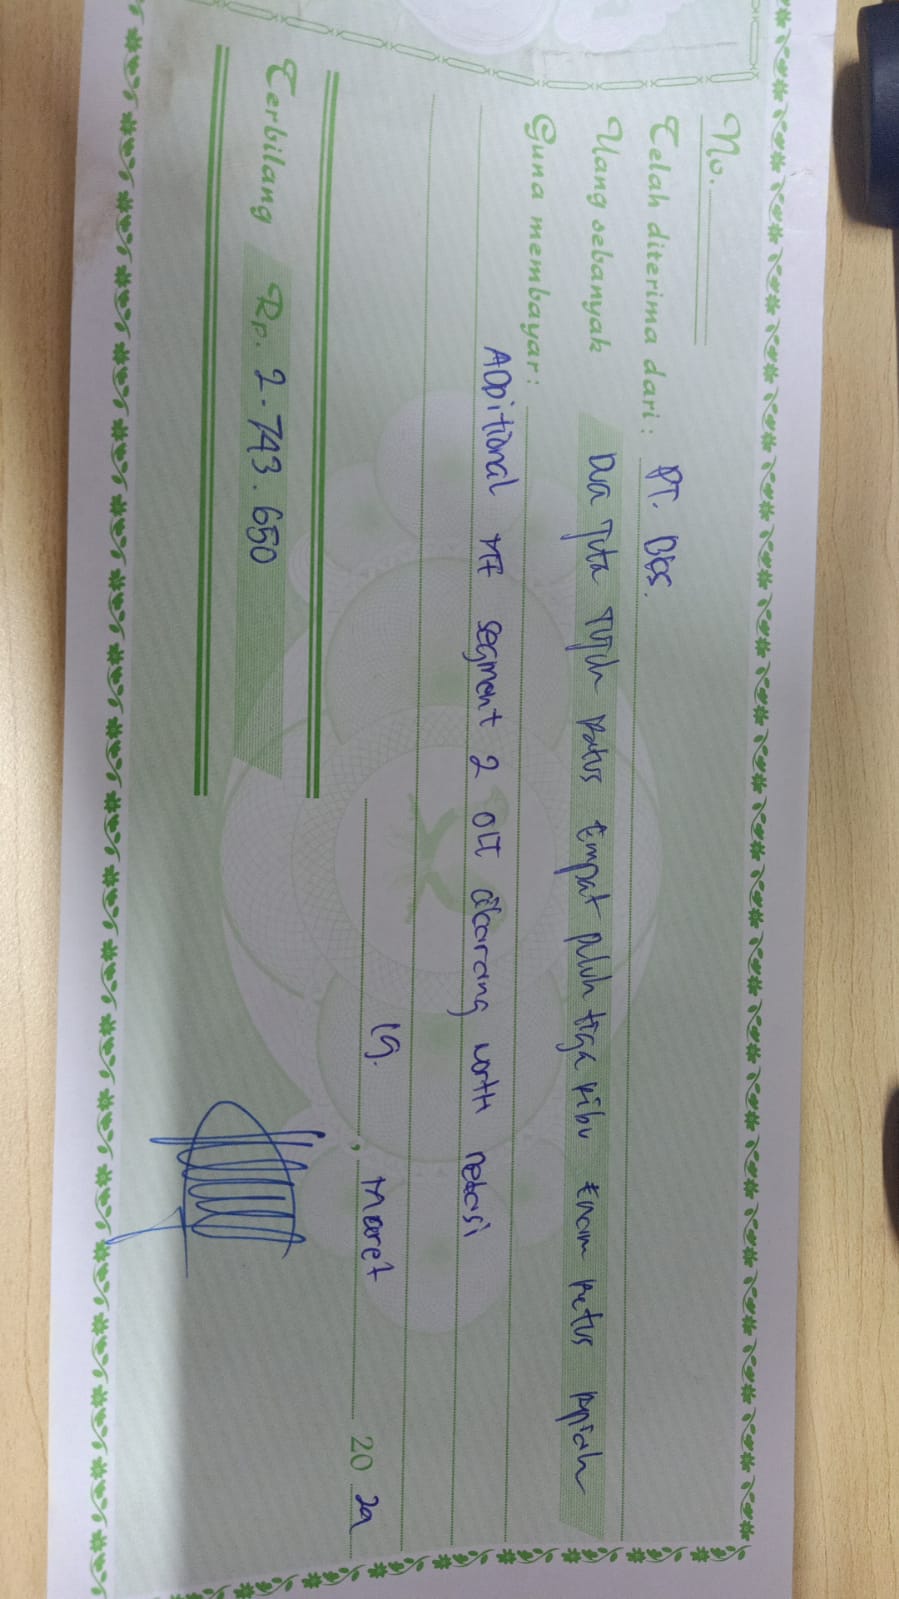 No.
Telah diterima dari: PT. BBS.
Uang sebanyak Dua Juta Tujuh Ratus Empat Puluh tiga Ribu Enam Ratus Rupiah
Guna membayar:
Additional MF segment 2 OLT cikarang north Bekasi
19. , Maret 20 24
Terbilang Rp. 2.743.650